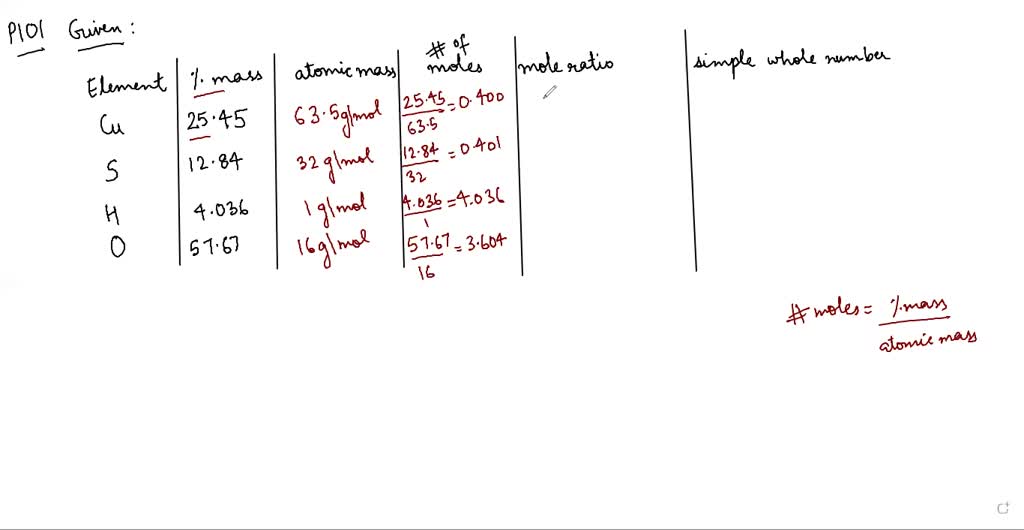 P101 Given :
Element % mass atomic mass # of moles mole ratio simple whole number
Cu 25.45 63.5 g/mol 25.45/63.5 = 0.400
S 12.84 32 g/mol 12.84/32 = 0.401
H 4.036 1 g/mol 4.036/1 = 4.036
O 57.67 16 g/mol 57.67/16 = 3.604
# moles = % mass / atomic mass